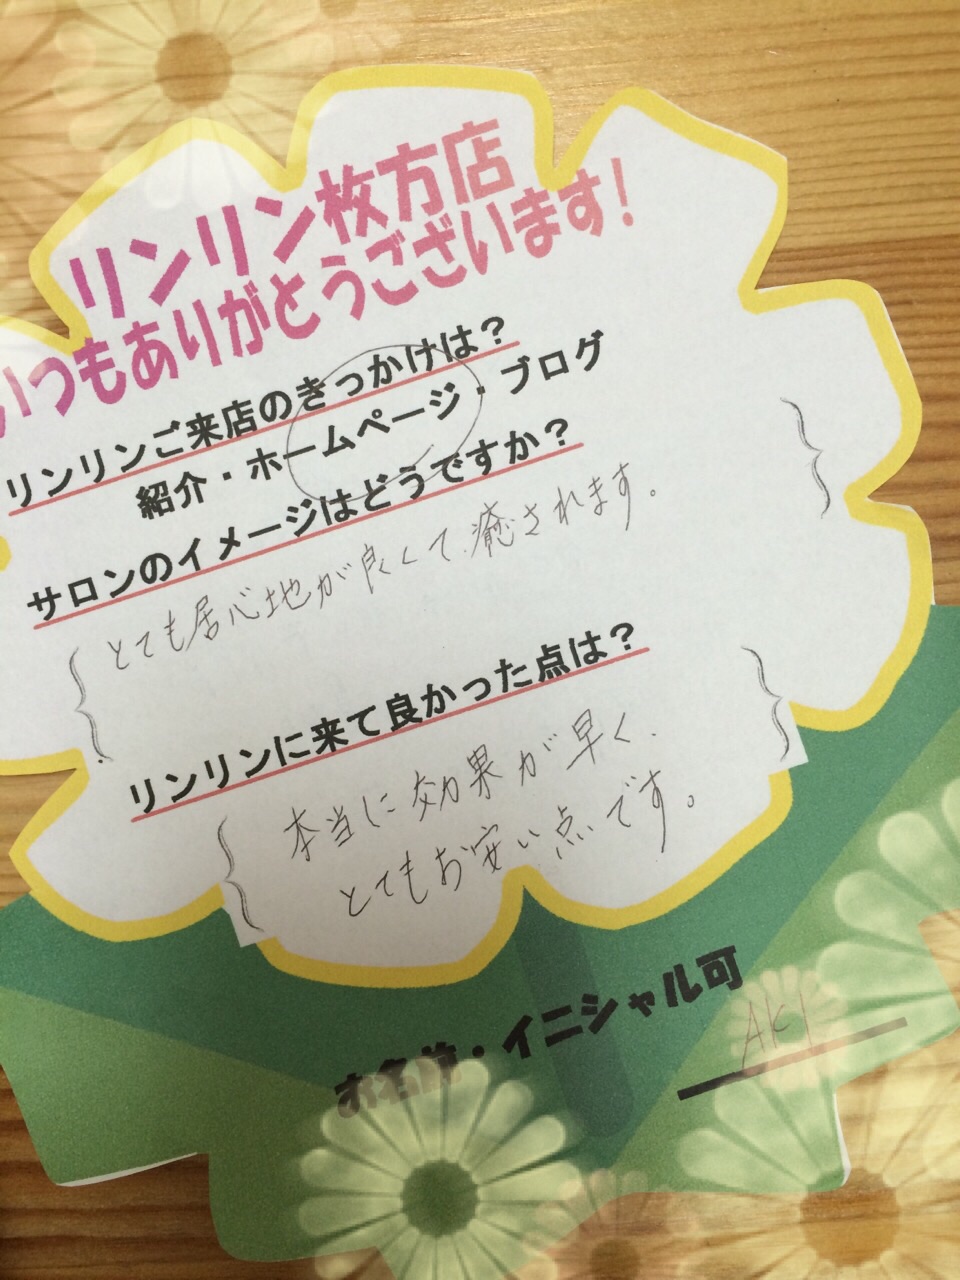 リンリン枚方店
いつもありがとうございます!
リンリンご来店のきっかけは?
紹介・ホームページ・ブログ
サロンのイメージはどうですか?
とても居心地が良くて、癒されます。
リンリンに来て良かった点は?
本当に効果が早く、
とてもお安い点です。
お名前・イニシャル可
AKI